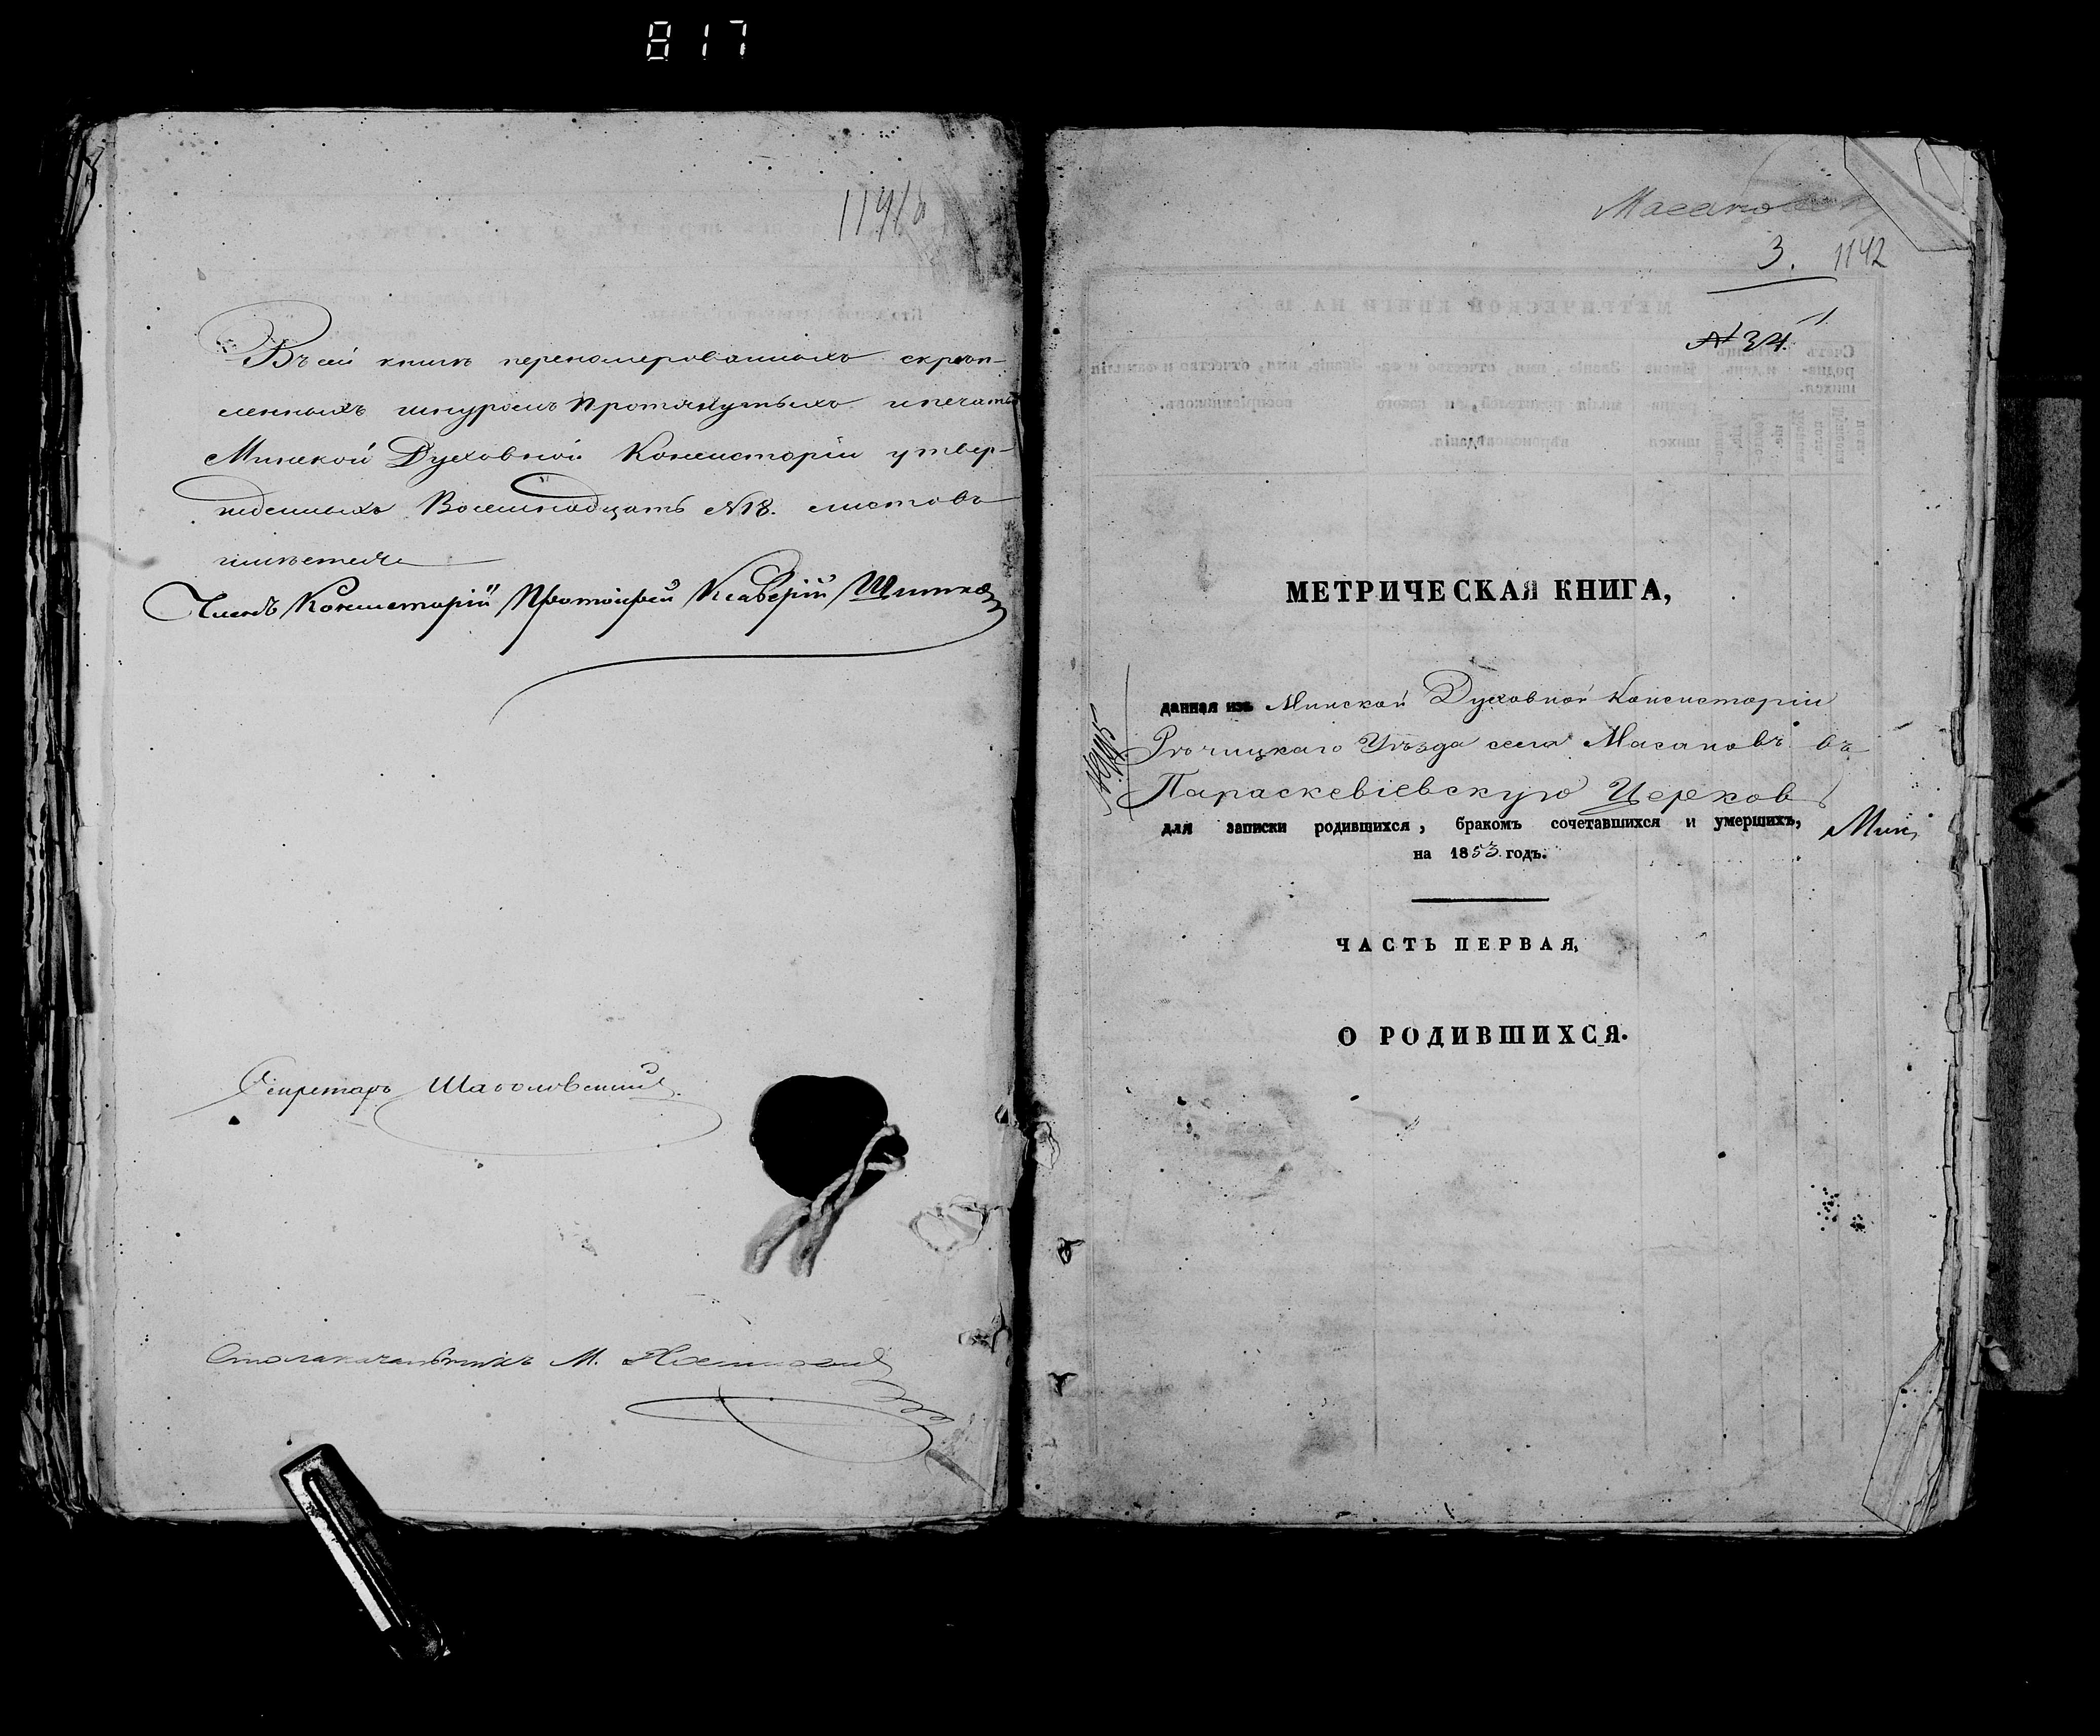 817
Въ сей книгѣ переномерованныхъ скрѣп-
ленныхъ шнуромъ протянутыхъ и печатью
Минской Духовной Консисторіи утвер-
жденныхъ Восемнадцать №18. листовъ
имѣется
Членъ Консисторіи Протоіерей Ксаверій
Секретарь
Столоначальникъ М.
3. 1142
№ 34
1
МЕТРИЧЕСКАЯ КНИГА,
данная изъ Минской Духовной Консисторіи
Рѣчицкаго Уѣзда села Масановъ въ
Параскевіевскую Церковь
для записки родившихся, бракомъ сочетавшихся и умершихъ, Мин
на 1853 годъ.
ЧАСТЬ ПЕРВАЯ,
О РОДИВШИХСЯ.